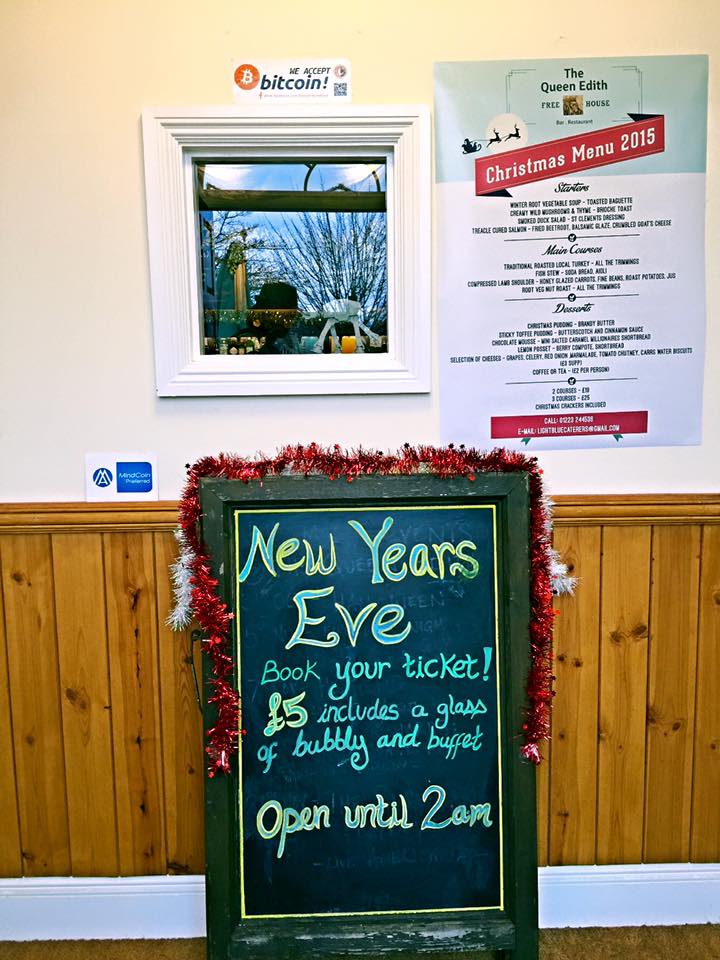 WE ACCEPT
bitcoin!
The
Queen Edith
FREE HOUSE
Bar . Restaurant
Christmas Menu 2015
Starters
WINTER ROOT VEGETABLE SOUP - TOASTED BAGUETTE
CREAMY WILD MUSHROOMS & THYME - BRIOCHE TOAST
SMOKED DUCK SALAD - ST CLEMENTS DRESSING
TREACLE CURED SALMON - FRIED BEETROOT, BALSAMIC GLAZE, CRUMBLED GOAT'S CHEESE
Main Courses
TRADITIONAL ROASTED LOCAL TURKEY - ALL THE TRIMMINGS
FISH STEW - SODA BREAD, AIOLI
COMPRESSED LAMB SHOULDER - HONEY GLAZED CARROTS, FINE BEANS, ROAST POTATOES, JUS
ROOT VEG NUT ROAST - ALL THE TRIMMINGS
Desserts
CHRISTMAS PUDDING - BRANDY BUTTER
STICKY TOFFEE PUDDING - BUTTERSCOTCH AND CINNAMON SAUCE
CHOCOLATE MOUSSE - MINI SALTED CARAMEL MILLIONAIRES SHORTBREAD
LEMON POSSET - BERRY COMPOTE, SHORTBREAD
SELECTION OF CHEESES - GRAPES, CELERY, RED ONION MARMALADE, TOMATO CHUTNEY, CARRS WATER BISCUITS
(£3 SUPP)
COFFEE OR TEA - (£2 PER PERSON)
2 COURSES - £19
3 COURSES - £25
CHRISTMAS CRACKERS INCLUDED
CALL: 01223 244536
E-MAIL: LIGHTBLUECATERERS@GMAIL.COM
MindCoin
Preferred
New Years
Eve
Book your ticket!
£5 includes a glass
of bubbly and buffet
Open until 2am